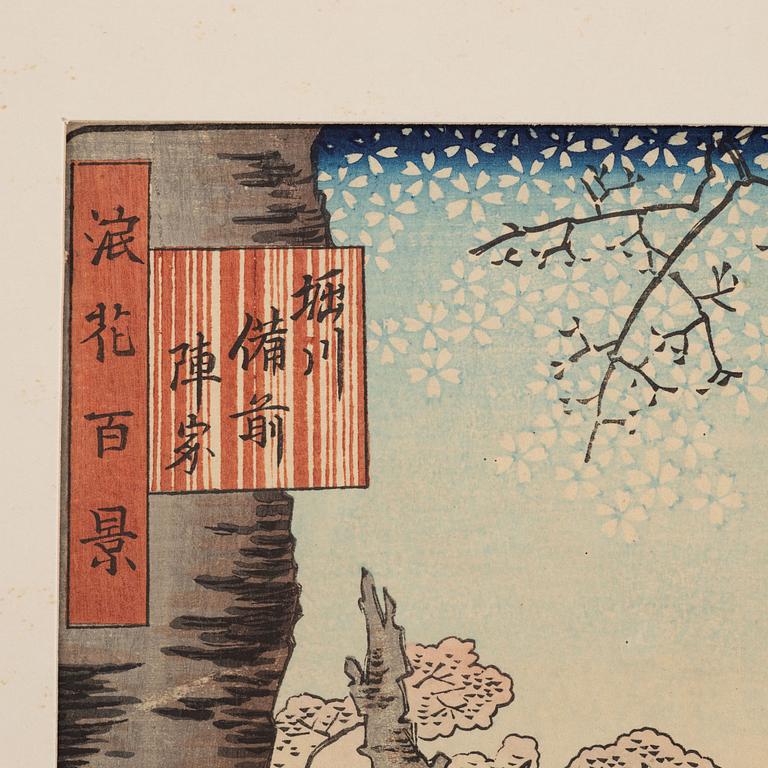 浪花百景
堀川
備前
陣家